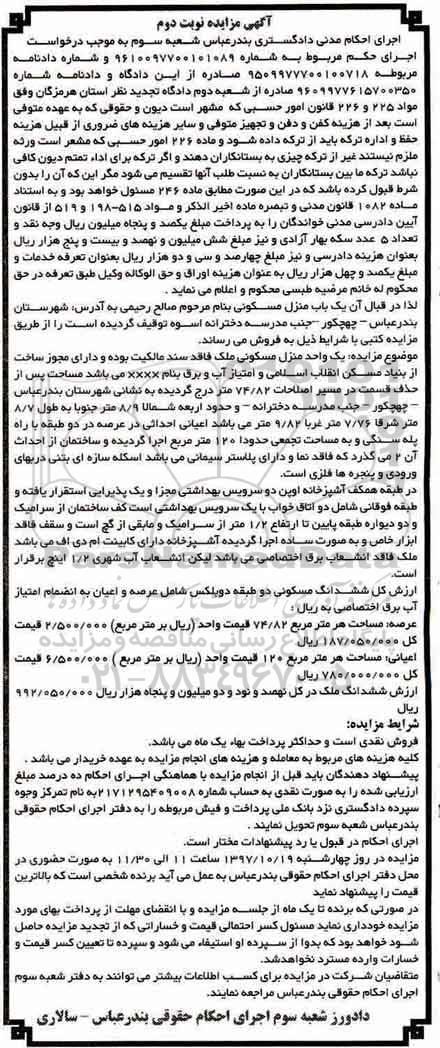 آگهی مزایده نوبت دوم
اجرای احکام مدنی دادگستری بندرعباس شعبه سوم به موجب درخواست
اجرای حکم مربوط به شماره ۹۶۱۰۰۹۷۷۰۰۱۰۱۰۸۹ و شماره دادنامه
مربوطه ۹۵۰۹۹۷۷۷۰۰۱۰۰۷۱۸ صادره از این دادگاه و دادنامه شماره
۹۶۰۹۹۷۷۶۱۵۷۰۰۳۵۰ صادره از شعبه دوم دادگاه تجدید نظر استان هرمزگان وفق
مواد ۲۲۵ و ۲۲۶ قانون امور حسبی که مشهر است دیون و حقوقی که به عهده متوفی
است بعد از هزینه کفن و دفن و تجهیز متوفی و سایر هزینه های ضروری از قبیل هزینه
حفظ و اداره ترکه باید از ترکه داده شود و ماده ۲۲۶ امور حسبی که مشعر است ورثه
ملزم نیستند غیر از ترکه چیزی به بستانکاران دهند و اگر ترکه برای اداء تمتم دیون کافی
نباشد ترکه ما بین بستانکاران به نسبت طلب آنها تقسیم می شود مگر این که آن را بدون
شرط قبول کرده باشد که در این صورت مطابق ماده ۲۴۶ مسئول خواهد بود و به استناد
ماده ۱۰۸۲ قانون مدنی و تبصره ماده اخیر الذکر و مواد ۵۱۵-۱۹۸ و ۵۱۹ از قانون
آیین دادرسی مدنی خواندگان را به پرداخت مبلغ یکصد و پنجاه میلیون ریال وجه نقد و
تعداد ۵ عدد سکه بهار آزادی و نیز مبلغ شش میلیون و نهصد و بیست و پنج هزار ریال
بعنوان هزینه دادرسی و نیز مبلغ چهارصد و سی و دو هزار ریال بعنوان تعرفه خدمات و
مبلغ یکصد و چهل هزار ریال به عنوان هزینه اوراق و حق الوکاله وکیل طبق تعرفه در حق
محکوم له خانم مرضیه طبسی محکوم و اعلام می نماید .
لذا در قبال آن یک باب منزل مسکونی بنام مرحوم صالح رحیمی به آدرس: شهرستان
بندرعباس – چهچکور –جنب مدرسه دخترانه اسوه توقیف گردیده است را از طریق
مزایده کتبی با شرایط ذیل به فروش می رساند.
موضوع مزایده: یک واحد منزل مسکونی ملک فاقد سند مالکیت بوده و دارای مجوز ساخت
از بنیاد مسکن انقلاب اسلامی و امتیاز آب و برق بنام xxxx می باشد مساحت پس از
حذف قسمت در مسیر اصلاحات ۷۴/۸۲ متر درج گردیده به نشانی شهرستان بندرعباس
– چهچکور – جنب مدرسه دخترانه – و حدود اربعه شمالا ۸/۹ متر جنوبا به طول ۸/۷
متر شرقا ۷/۷۶ متر غربا ۹/۸۲ متر می باشد اعیانی احداثی در عرصه در دو طبقه با راه
پله سنگی و به مساحت تجمعی حدودا ۱۲۰ متر مربع اجرا گردیده و ساختمان از احداث
آن ۲ می گذرد که فاقد نما و دارای پلاستر سیمانی می باشد اسکله سازه ای بتنی دربهای
ورودی و پنجره ها فلزی است.
در طبقه همکف آشپزخانه اوپن دو سرویس بهداشتی مجزا و یک پذیرایی استقرار یافته و
طبقه فوقانی شامل دو اتاق خواب با یک سرویس بهداشتی است کف ساختمان از سرامیک
و دو دیواره طبقه پایین تا ارتفاع ۱/۲ متر از سرامیک و مابقی از گچ است و سقف فاقد
ابزار خاص و به صورت ساده اجرا گردیده آشپزخانه دارای کابینت ام دی اف می باشد
ملک فاقد انشعاب برق اختصاصی می باشد لیکن انشعاب آب شهری ۱/۲ اینچ برقرار
است.
ارزش کل ششدانگ مسکونی دو طبقه دوپلکس شامل عرصه و اعیان به انضمام امتیاز
آب برق اختصاصی به ریال :
عرصه: مساحت هر متر مربع ۷۴/۸۲ قیمت واحد (ریال بر متر مربع) ۲/۵۰۰/۰۰۰ قیمت
کل ۱۸۷/۰۵۰/۰۰۰ ریال
اعیانی: مساحت هر متر مربع ۱۲۰ قیمت واحد (ریال بر متر مربع) ۶/۵۰۰/۰۰۰ قیمت
کل ۷۸۰/۰۰۰/۰۰۰ ریال
ارزش ششدانگ ملک در کل نهصد و نود و دو میلیون و پنجاه هزار ریال ۹۹۲/۰۵۰/۰۰۰
ریال
شرایط مزایده:
فروش نقدی است و حداکثر پرداخت بهاء یک ماه می باشد.
کلیه هزینه های مربوط به معامله و هزینه های انجام مزایده به عهده خریدار می باشد .
پیشنهاد دهندگان باید قبل از انجام مزایده با هماهنگی اجرای احکام ده درصد مبلغ
ارزیابی شده را به صورت نقدی به حساب شماره ۲۱۷۱۲۹۵۴۰۹۰۰۸ به نام تمرکز وجوه
سپرده دادگستری نزد بانک ملی پرداخت و فیش مربوطه را به دفتر اجرای احکام حقوقی
بندرعباس شعبه سوم تحویل نمایند .
اجرای احکام در قبول یا رد پیشنهادات مختار است.
مزایده در روز چهارشنبه ۱۳۹۷/۱۰/۱۹ ساعت ۱۱ الی ۱۱/۳۰ به صورت حضوری در
محل دفتر اجرای احکام حقوقی بندرعباس به عمل می آید برنده شخصی است که بالاترین
قیمت را پیشنهاد نماید
در صورتی که برنده تا یک ماه از جلسه مزایده و با انقضای مهلت از پرداخت بهای مورد
مزایده خودداری نماید مسئول کسر احتمالی قیمت و خساراتی که از تجدید مزایده حاصل
شود خواهد بود که بدوا از سپرده او استیفاء می شود و سپرده تا تعیین کسر قیمت و
خسارات وارده مسترد نخواهدشد.
متقاضیان شرکت در مزایده برای کسب اطلاعات بیشتر می توانند به دفتر شعبه سوم
اجرای احکام حقوقی بندرعباس مراجعه نمایند.
دادورز شعبه سوم اجرای احکام حقوقی بندرعباس – سالاری